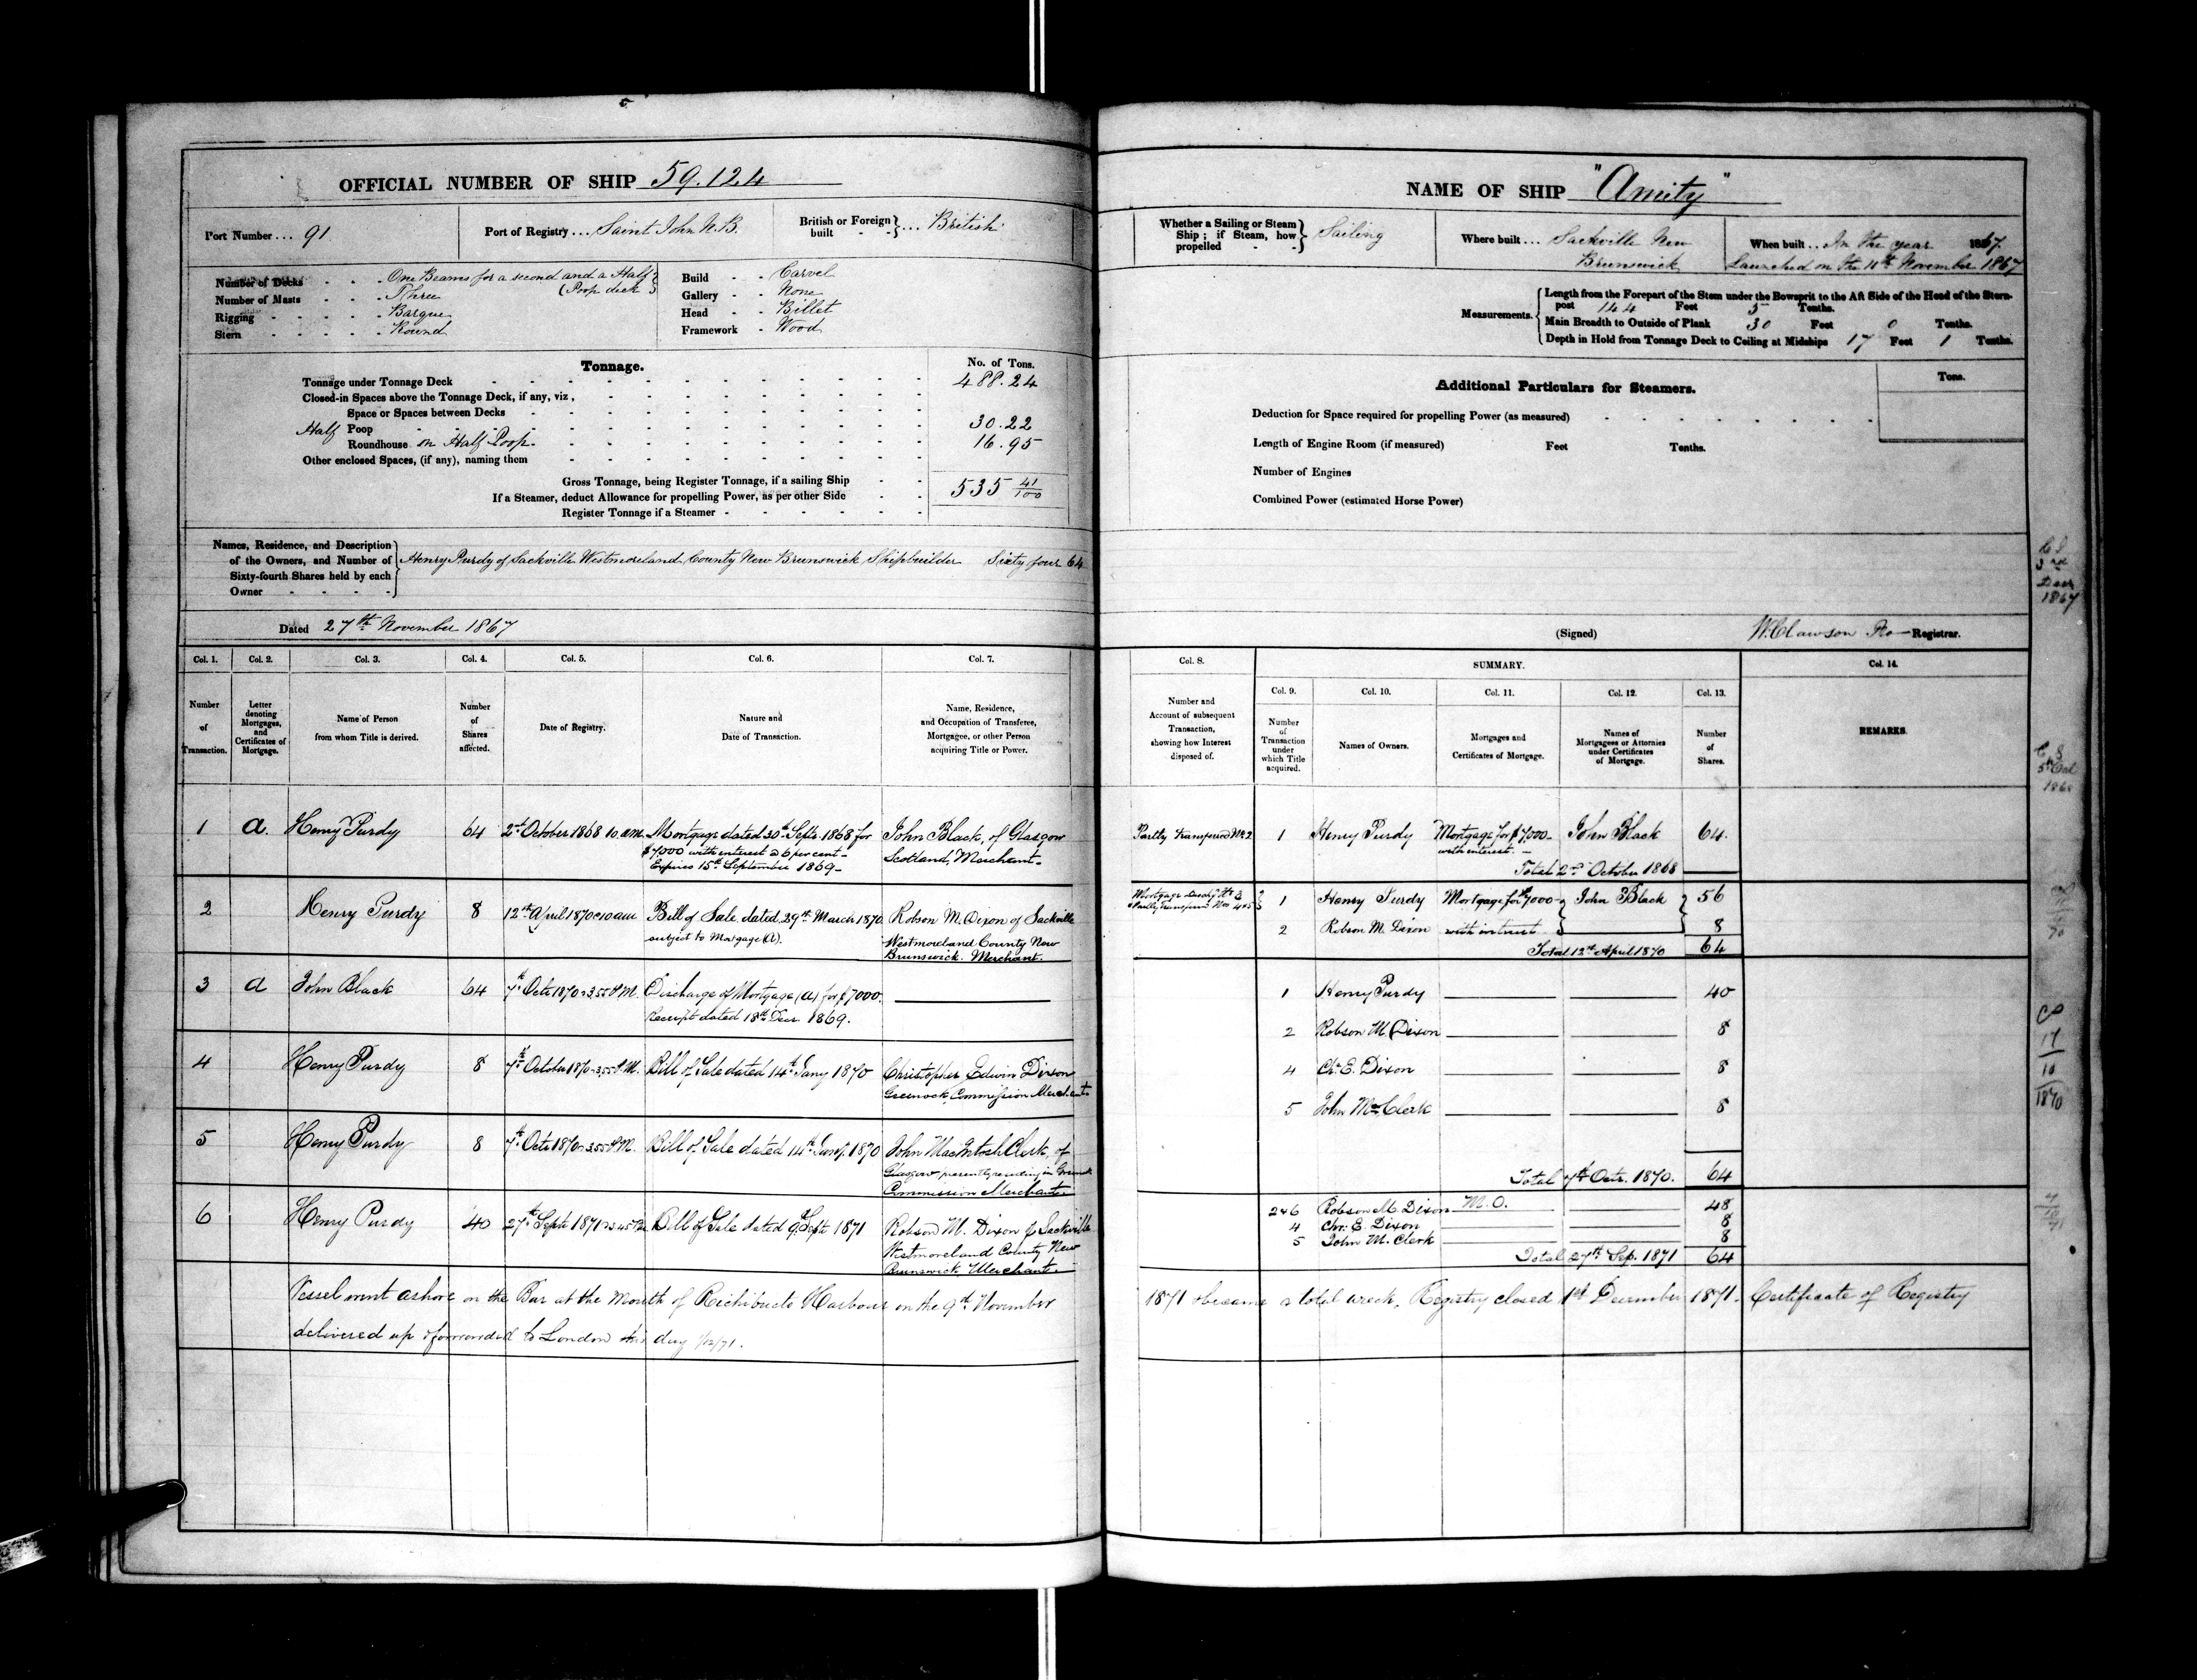 OFFICIAL NUMBER OF SHIP 59.124
Port Number ... 91
Port of Registry ... Saint John N.B.
British or Foreign built - - } ... British
Number of Decks - - - One Beams for a second and a Half (Poop deck
Number of Masts - - - Three
Rigging - - - - Barque
Stern - - - - Round
Build - - Carvel
Gallery - - None
Head - - Billet
Framework - Wood
Tonnage.
No. of Tons.
Tonnage under Tonnage Deck 488.24
Closed-in Spaces above the Tonnage Deck, if any, viz,
Space or Spaces between Decks
Half Poop 30.22
Roundhouse on Half Poop 16.95
Other enclosed Spaces, (if any), naming them
Gross Tonnage, being Register Tonnage, if a sailing Ship
If a Steamer, deduct Allowance for propelling Power, as per other Side
535 41/100
Register Tonnage if a Steamer
Names, Residence, and Description
of the Owners, and Number of
Sixty-fourth Shares held by each
Owner
Henry Purdy of Sackville Westmoreland County New Brunswick Shipbuilder Sixty four 64
Dated 27th November 1867
Col. 1. Col. 2. Col. 3. Col. 4. Col. 5. Col. 6. Col. 7.
Number of Transaction.
Letter denoting Mortgages, and Certificates of Mortgage.
Name of Person from whom Title is derived.
Number of Shares affected.
Date of Registry.
Nature and Date of Transaction.
Name, Residence, and Occupation of Transferee, Mortgagee, or other Person acquiring Title or Power.
1 a. Henry Purdy 64 2nd October 1868 10 a.m. Mortgage dated 30th Septr. 1868 for John Black, of Glasgow
$7000 with interest @ 6 per cent - Scotland, Merchant -
Expires 15th September 1869 -
2 Henry Purdy 8 12th April 1870 @ 10 am Bill of Sale dated 29th March 1870 Robson M. Dixon of Sackville
subject to Mortgage (A). Westmoreland County New
Brunswick. Merchant.
3 a John Black 64 7th Octr 1870 @ 3.55 P.M. Discharge of Mortgage (a) for $7000
Receipt dated 18th Decr. 1869.
4 Henry Purdy 8 7th October 1870 @ 3.55 P.M. Bill of Sale dated 14th Jany 1870 Christopher Edwin Dixon
Greenock, Commission Merchant
5 Henry Purdy 8 7th Octr 1870 @ 3.55 P.M. Bill of Sale dated 14th 1870 John MacIntosh Clerk, of
Glasgow presently residing in
Commission Merchant
6 Henry Purdy 40 27th Septr 1871 @ 3.45 Bill of Sale dated 9th Septr 1871 Robson M. Dixon of Sackville
Westmoreland County New
Brunswick, Merchant.
Vessel went ashore on the Bar at the Mouth of Richibucto Harbour on the 9th November
delivered up & forwarded to London this day 1/12/71.
NAME OF SHIP "Amity"
Whether a Sailing or Steam Ship; if Steam, how propelled - } Sailing
Where built ... Sackville New
Brunswick
When built ... In the year 1867.
Launched on the 11th November 1867
Measurements.
Length from the Forepart of the Stem under the Bowsprit to the Aft Side of the Head of the Stern-
post 144 Feet 5 Tenths.
Main Breadth to Outside of Plank 30 Feet 0 Tenths.
Depth in Hold from Tonnage Deck to Ceiling at Midships 17 Feet 1 Tenths.
Additional Particulars for Steamers.
Tons.
Deduction for Space required for propelling Power (as measured)
Length of Engine Room (if measured) Feet Tenths.
Number of Engines
Combined Power (estimated Horse Power)
3rd
Decr
1867
(Signed) W. Clawson Registrar.
Col. 8. SUMMARY. Col. 14.
Col. 9. Col. 10. Col. 11. Col. 12. Col. 13.
Number and Account of subsequent Transaction, showing how Interest disposed of.
Number of Transaction under which Title acquired.
Names of Owners.
Mortgages and Certificates of Mortgage.
Names of Mortgagees or Attornies under Certificates of Mortgage.
Number of Shares.
REMARKS.
Partly transferred No 2 1 Henry Purdy Mortgage for $7000 - John Black 64.
with interest. -
Total 2nd October 1868
1 Henry Purdy Mortgage for $7000 - John Black 56
2 Robson M. Dixon with interest 8
Total 12th April 1870 64
1 Henry Purdy 40
2 Robson M. Dixon 8
4 Chr. E. Dixon 8
5 John M. Clerk 8
Total 7th Octr. 1870. 64
2 & 6 Robson M. Dixon M.O. 48
4 Chr. E. Dixon 8
5 John M. Clerk 8
Total 27th Sep. 1871 64
1871 & became a total wreck, Registry closed 1st December 1871. Certificate of Registry
17
10
1870